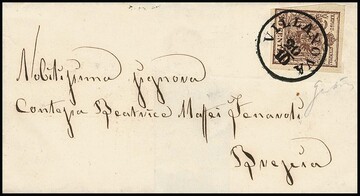 VILLANOVA
20
10
Nobilissima Signora
Contessa Beatrice Maffei Fenaroli
Brescia